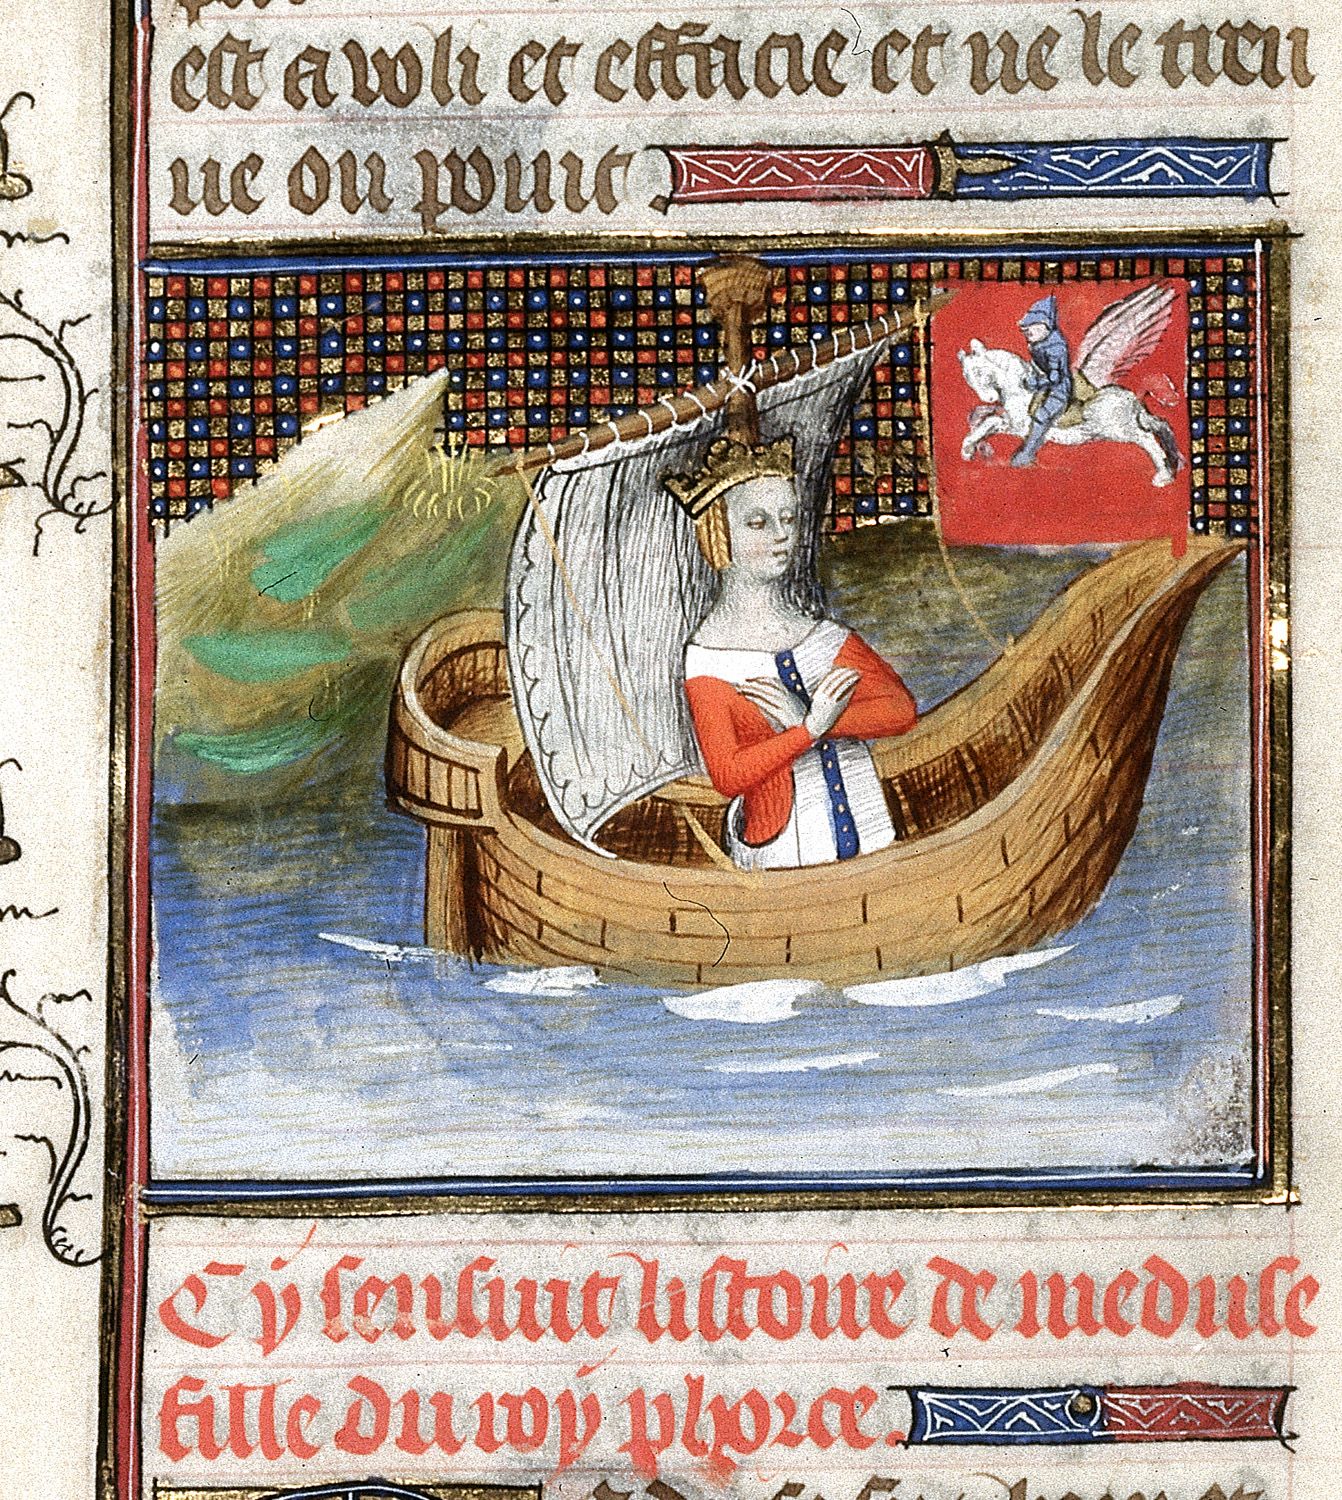 est aboli et effacie et ne le treu
ue on point
Cy sensuit listoire de meduse
fille du roy phorce.